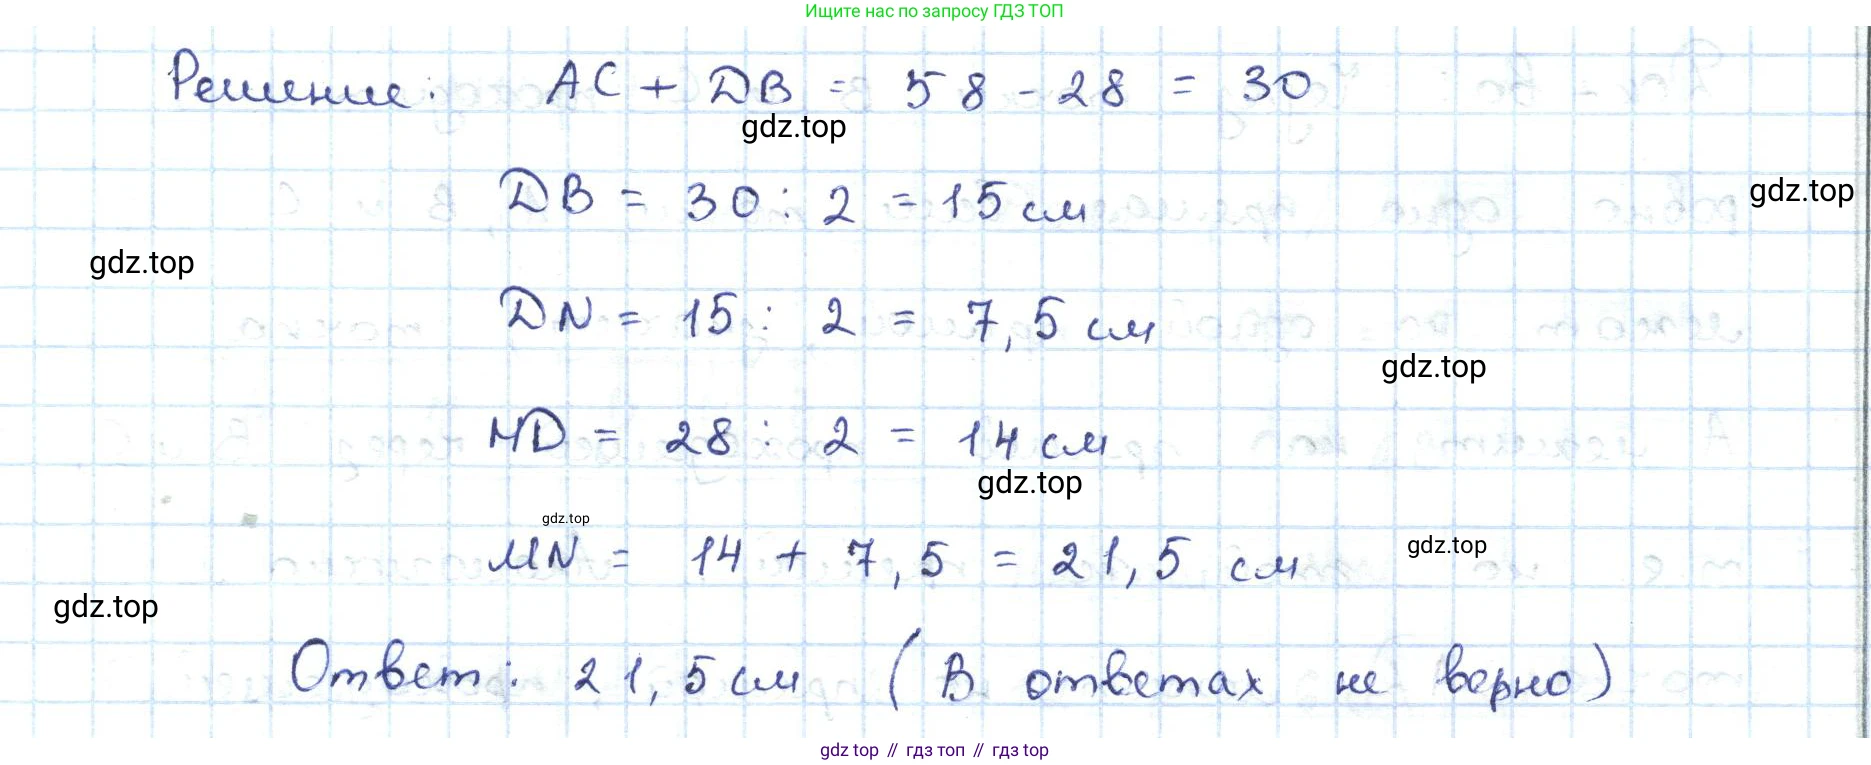 Ищите нас по запросу ГДЗ ТОП
Решение: AC + DB = 58 - 28 = 30
gdz.top
gdz.top
DB = 30 : 2 = 15 см
gdz.top
DN = 15 : 2 = 7,5 см
gdz.top
MD = 28 : 2 = 14 см
gdz.top
gdz.top
MN = 14 + 7,5 = 21,5 см
gdz.top
gdz.top
Ответ: 21,5 см (В ответах не верно)
gdz top // гдз топ // гдз top